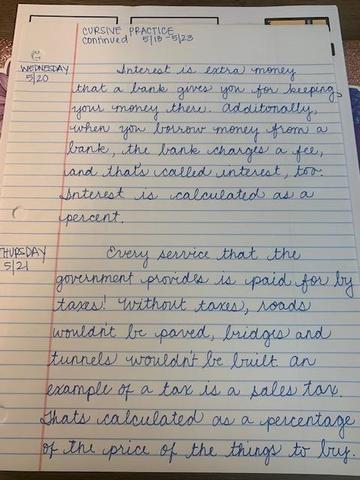 CURSIVE PRACTICE
Continued 5/18 - 5/23
WEDNESDAY
5/20
Interest is extra money
that a bank gives you for keeping
your money there. Additonally,
when you borrow money from a
bank, the bank charges a fee,
and that's called interest, too.
Interest is calculated as a
percent.
THURSDAY
5/21
Every service that the
government provides is paid for by
taxes! Without taxes, roads
wouldn't be paved, bridges and
tunnels wouldn't be built. An
example of a tax is a sales tax.
Thats calculated as a percentage
of the price of the things to buy.